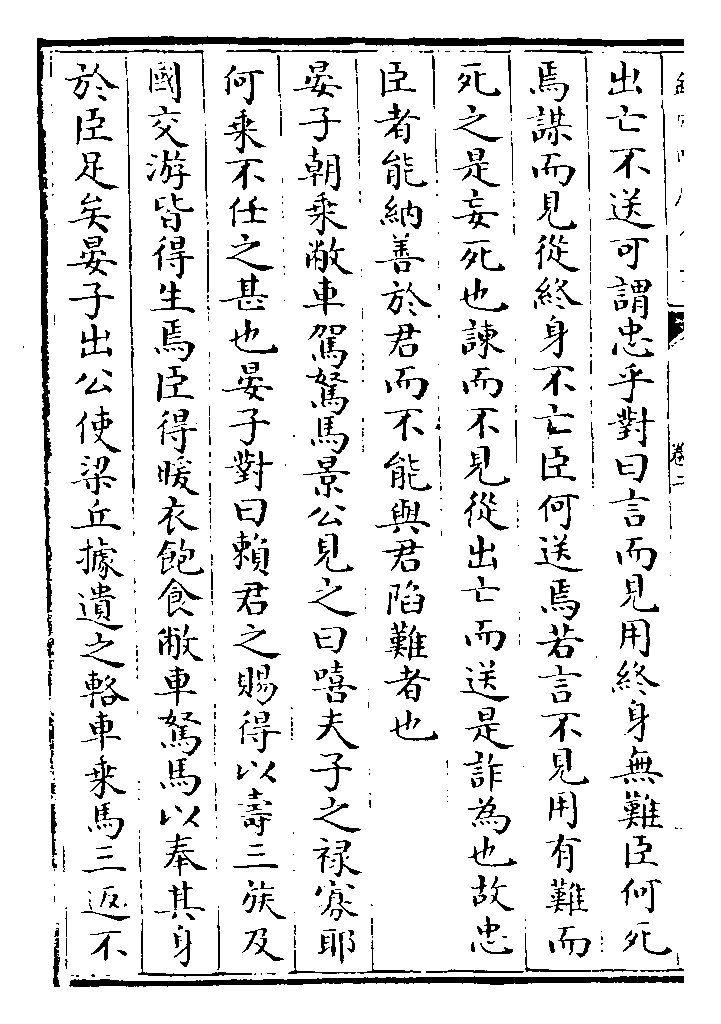 出亡不送可謂忠乎對曰言而見用終身無難臣何死
焉謀而見從終身不亡臣何送焉若言不見用有難而
死之是妄死也諫而不見從出亡而送是詐為也故忠
臣者能納善於君而不能與君陷難者也
晏子朝乘敝車駕駑馬景公見之曰嘻夫子之祿寡耶
何乘不任之甚也晏子對曰賴君之賜得以壽三族及
國交游皆得生焉臣得暖衣飽食敝車駑馬以奉其身
於臣足矣晏子出公使梁丘據遺之輅車乘馬三返不
卷二